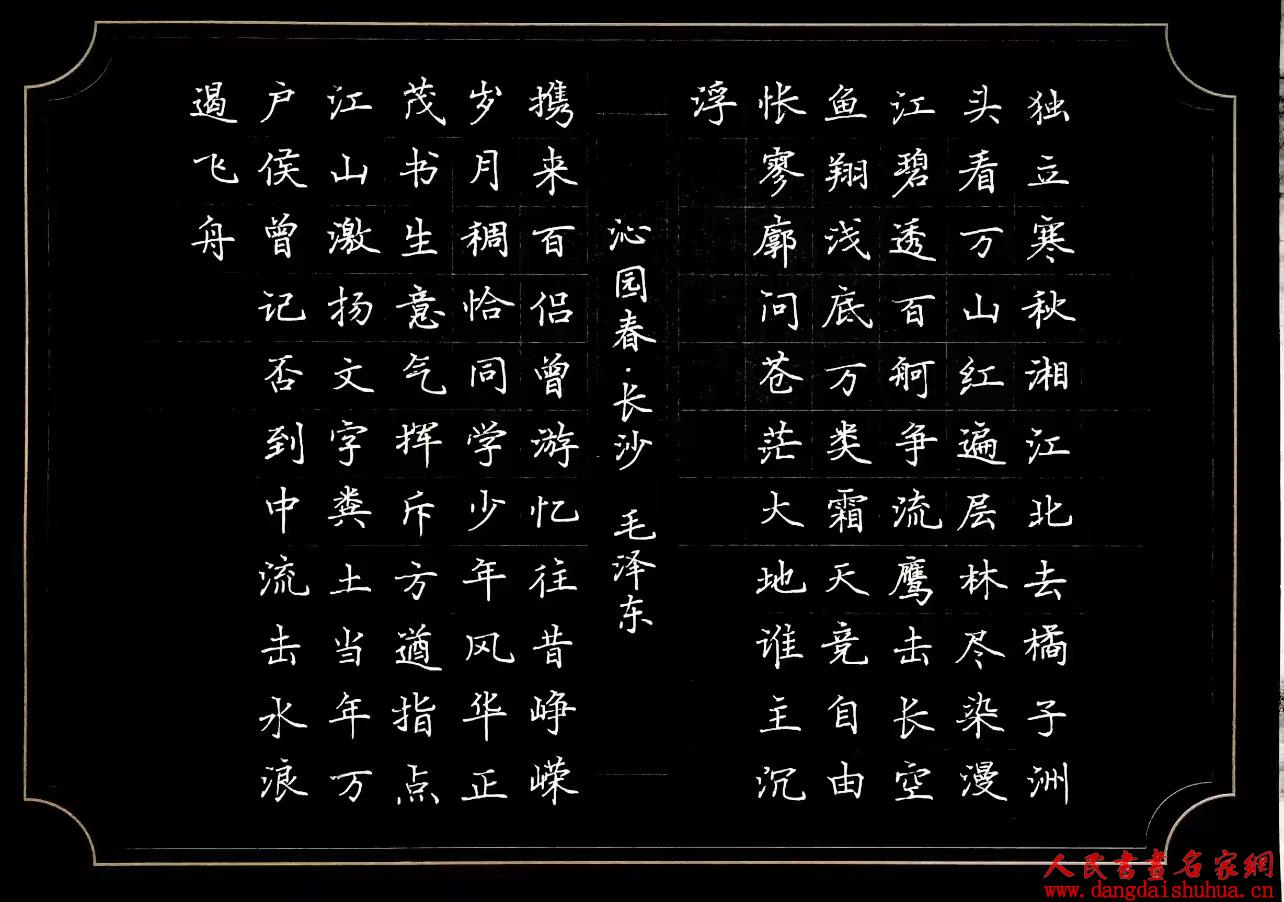 独立寒秋湘江北去橘子洲
头看万山红遍层林尽染漫
江碧透百舸争流鹰击长空
鱼翔浅底万类霜天竞自由
怅寥廓问苍茫大地谁主沉
浮
沁园春·长沙 毛泽东
携来百侣曾游忆往昔峥嵘
岁月稠恰同学少年风华正
茂书生意气挥斥方遒指点
江山激扬文字粪土当年万
户侯曾记否到中流击水浪
遏飞舟
人民書畫名家網
www.dangdaishuhua.cn